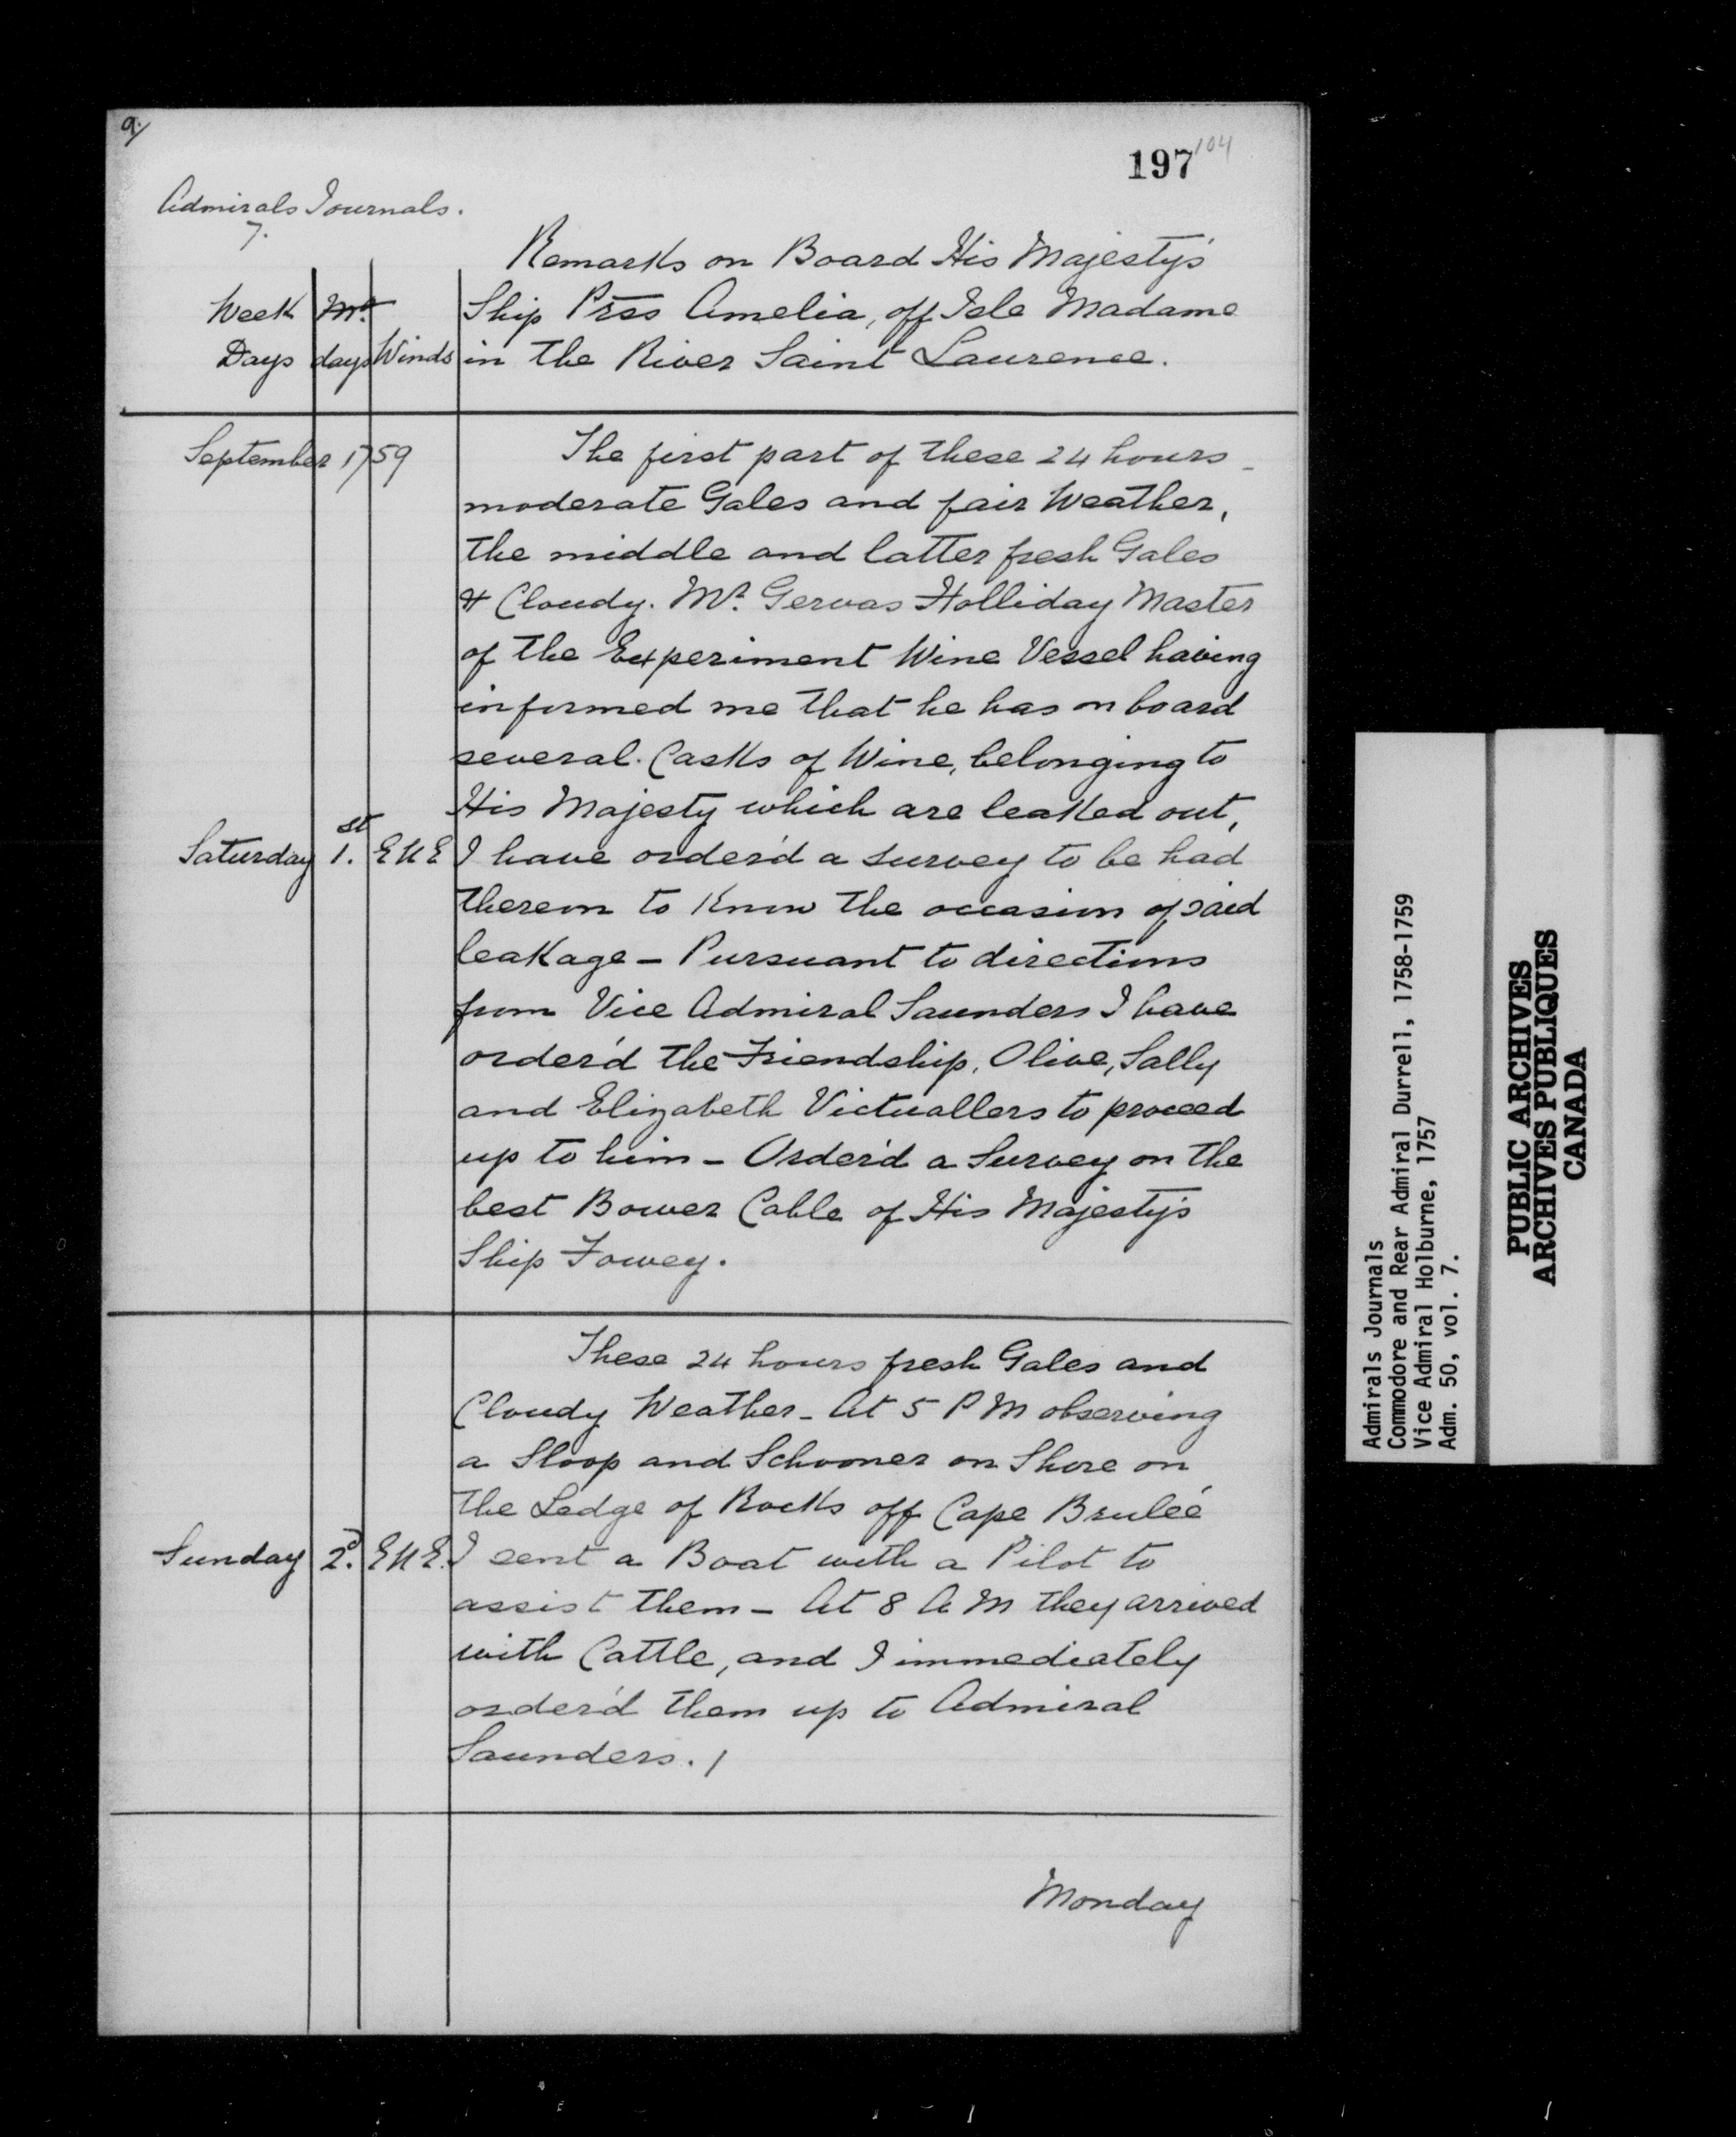 9/
197
104
Admirals Journals.
7.
Remarks on Board His Majesty's
Week Mo. Ship Prss Amelia, off Isle Madame
Days days Winds in the River Saint Laurence.
September 1759 The first part of these 24 hours
moderate Gales and fair Weather,
the middle and latter fresh Gales
& Cloudy. Mr. Gervas Holliday Master
of the Experiment Wine Vessel having
informed me that he has on board
several. Casks of Wine, belonging to
His Majesty which are leaked out,
Saturday 1.st ENE I have order'd a survey to be had
thereon to know the occasion of said
leakage – Pursuant to directions
from Vice Admiral Saunders I have
order'd the Friendship, Olive, Sally
and Elizabeth Victuallers to proceed
up to him – Order'd a Survey on the
best Bower Cable of His Majesty's
Ship Fowey.
These 24 hours fresh Gales and
Cloudy Weather – At 5 P M observing
a Sloop and Schooner on Shore on
the Ledge of Rocks off Cape Bruleé
Sunday 2.d ENE. I sent a Boat with a Pilot to
assist them – At 8 A M they arrived
with Cattle, and I immediately
order'd them up to Admiral
Saunders. /
Monday
Admirals Journals
Commodore and Rear Admiral Durrell, 1758-1759
Vice Admiral Holburne, 1757
Adm. 50, vol. 7.
PUBLIC ARCHIVES
ARCHIVES PUBLIQUES
CANADA